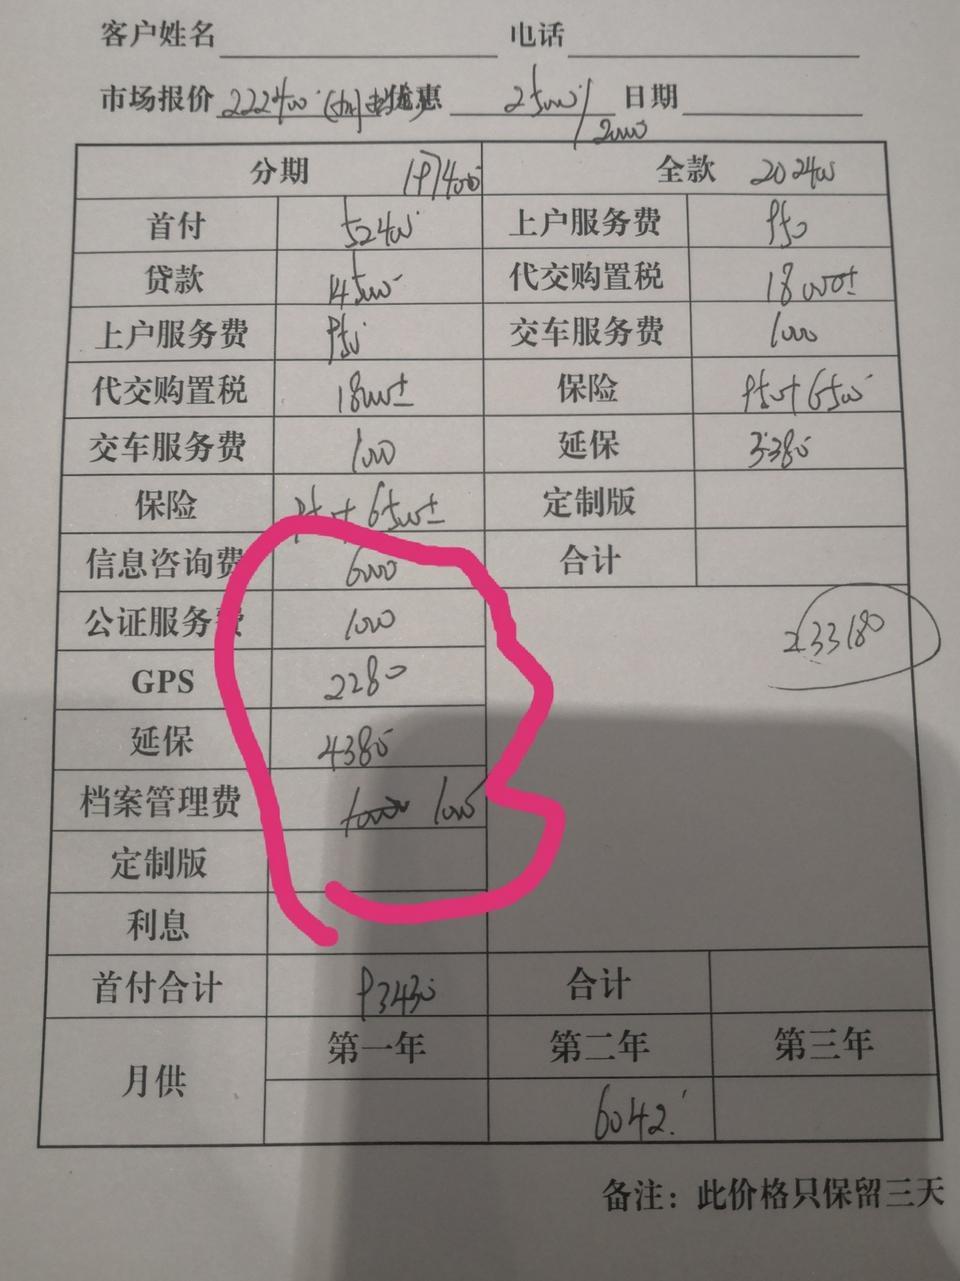 客户姓名 电话
市场报价 222400 优惠 25000/ 日期
20000
分期 197400 全款 202400
首付 52400 上户服务费 950
贷款 145000 代交购置税 18000±
上户服务费 950 交车服务费 1000
代交购置税 18000± 保险 950+6500
交车服务费 1000 延保 3380
保险 950+6500± 定制版
信息咨询费 6000 合计
公证服务费 1000 233180
GPS 2280
延保 4380
档案管理费 1000
定制版
利息
首付合计 93430 合计
月供 第一年 第二年 第三年
6042.
备注：此价格只保留三天